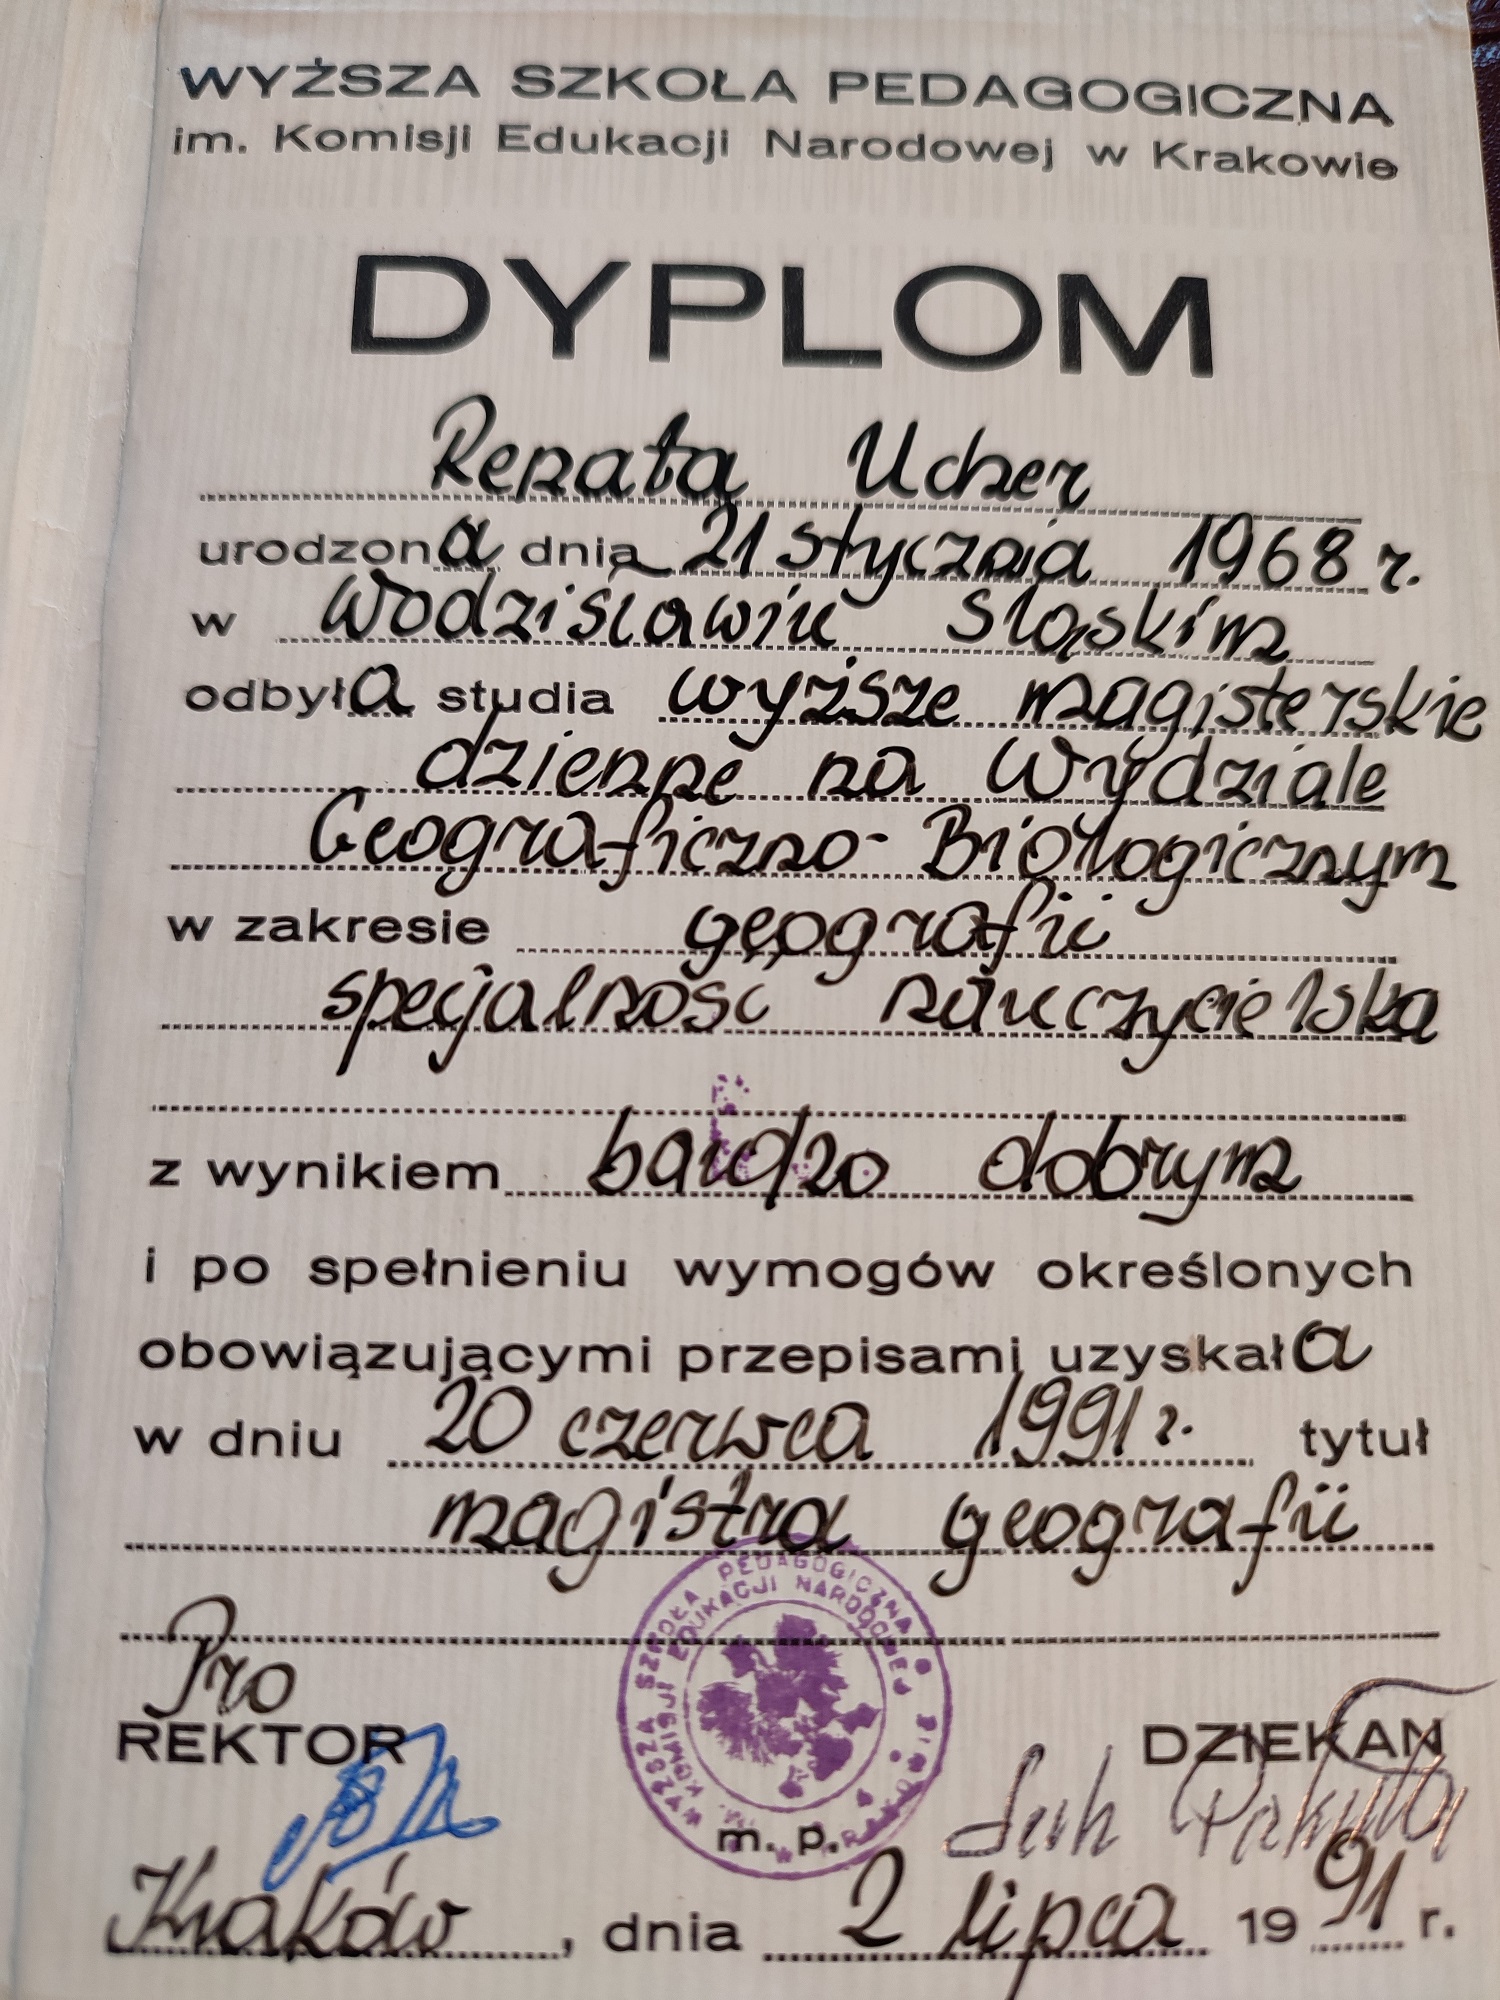 WYŻSZA SZKOŁA PEDAGOGICZNA
im. Komisji Edukacji Narodowej w Krakowie
DYPLOM
Renata Ucher
urodzona dnia 21 stycznia 1968 r.
w Wodzisławiu Śląskim
odbyła studia wyższe magisterskie
dzienne na Wydziale
Geograficzno-Biologicznym
w zakresie geografii
specjalność nauczycielska
z wynikiem bardzo dobrym
i po spełnieniu wymogów określonych
obowiązującymi przepisami uzyskała
w dniu 20 czerwca 1991 r. tytuł
magistra geografii
WYŻSZA SZKOŁA PEDAGOGICZNA
KOMISJI EDUKACJI NARODOWEJ
Pro
REKTOR DZIEKAN
m. p.
Kraków, dnia 2 lipca 1991 r.